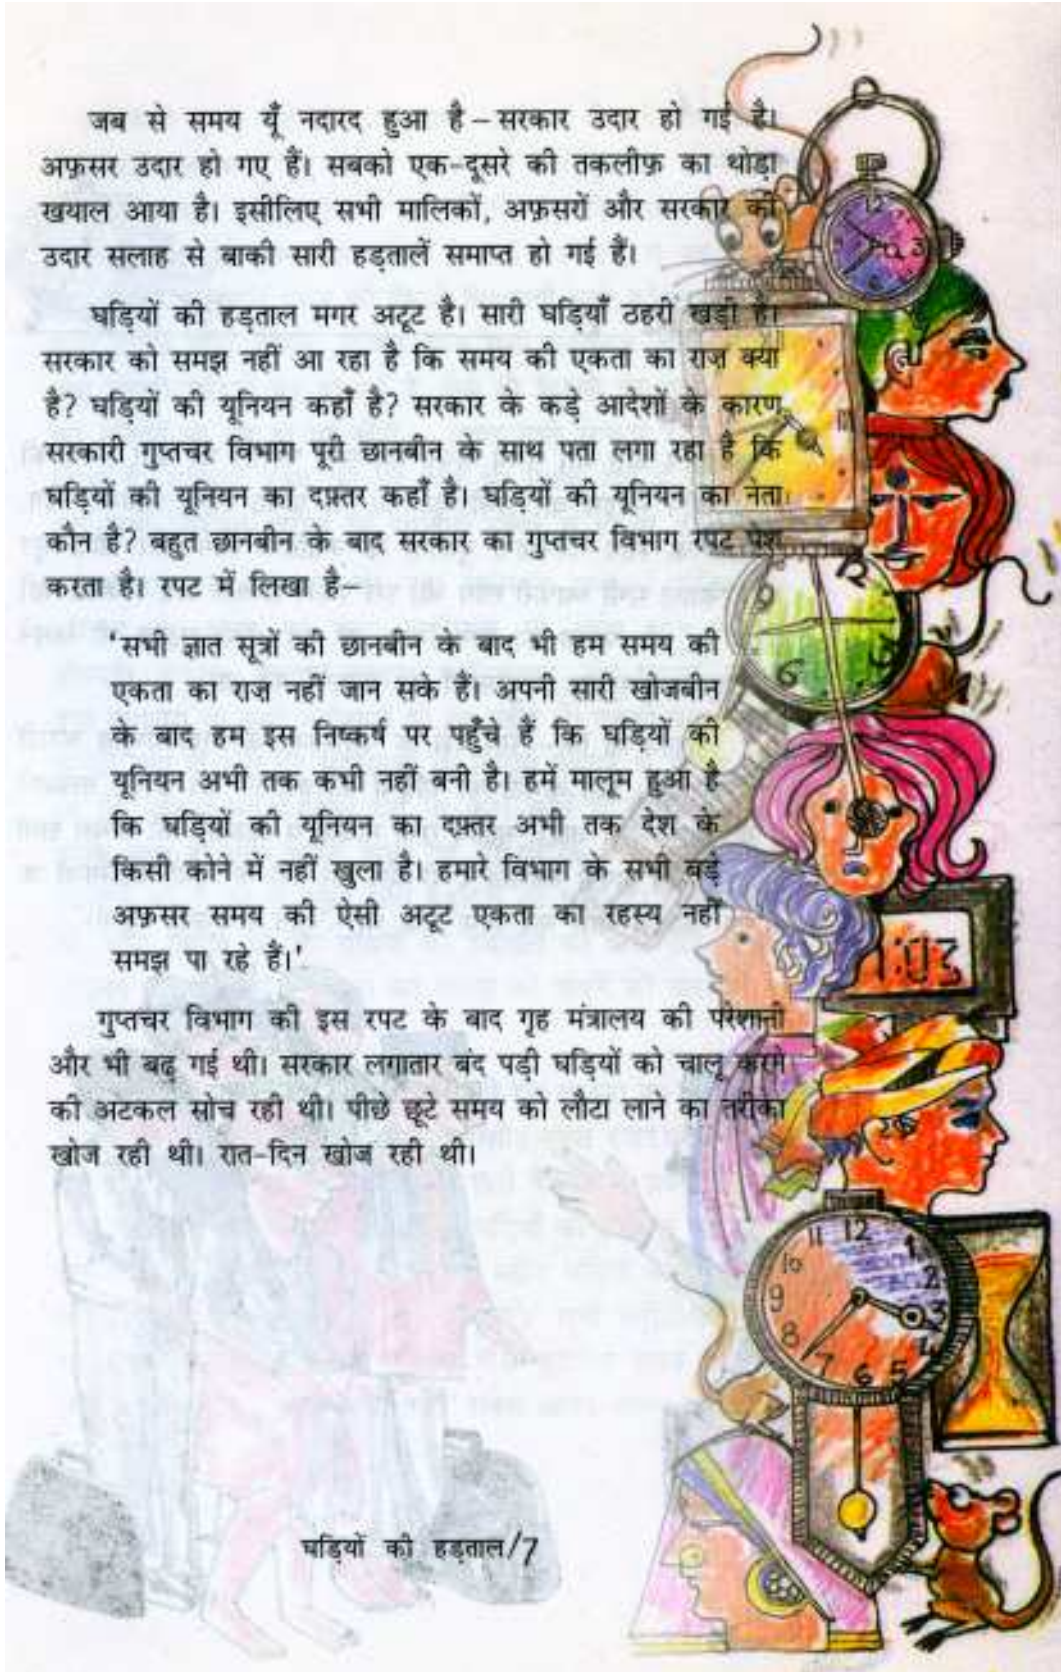 जब से समय यूँ नदारद हुआ है – सरकार उदार हो गई है।
अफ़सर उदार हो गए हैं। सबको एक-दूसरे की तकलीफ़ का थोड़ा
खयाल आया है। इसीलिए सभी मालिकों, अफ़सरों और सरकार की
उदार सलाह से बाकी सारी हड़तालें समाप्त हो गई हैं।
घड़ियों की हड़ताल मगर अटूट है। सारी घड़ियाँ ठहरी खड़ी हैं।
सरकार को समझ नहीं आ रहा है कि समय की एकता का राज़ क्या
है? घड़ियों की यूनियन कहाँ है? सरकार के कड़े आदेशों के कारण
सरकारी गुप्तचर विभाग पूरी छानबीन के साथ पता लगा रहा है कि
घड़ियों की यूनियन का दफ़्तर कहाँ है। घड़ियों की यूनियन का नेता
कौन है? बहुत छानबीन के बाद सरकार का गुप्तचर विभाग रपट पेश
करता है। रपट में लिखा है–
'सभी ज्ञात सूत्रों की छानबीन के बाद भी हम समय की
एकता का राज़ नहीं जान सके हैं। अपनी सारी खोजबीन
के बाद हम इस निष्कर्ष पर पहुँचे हैं कि घड़ियों की
यूनियन अभी तक कभी नहीं बनी है। हमें मालूम हुआ है
कि घड़ियों की यूनियन का दफ़्तर अभी तक देश के
किसी कोने में नहीं खुला है। हमारे विभाग के सभी बड़े
अफ़सर समय की ऐसी अटूट एकता का रहस्य नहीं
समझ पा रहे हैं।'
गुप्तचर विभाग की इस रपट के बाद गृह मंत्रालय की परेशानी
और भी बढ़ गई थी। सरकार लगातार बंद पड़ी घड़ियों को चालू करने
की अटकल सोच रही थी। पीछे छूटे समय को लौटा लाने का तरीका
खोज रही थी। रात-दिन खोज रही थी।
12
3
6
12
9
3
6
1:03
11 12 1
10 2
9 3
8 4
7 6 5
घड़ियों की हड़ताल/7